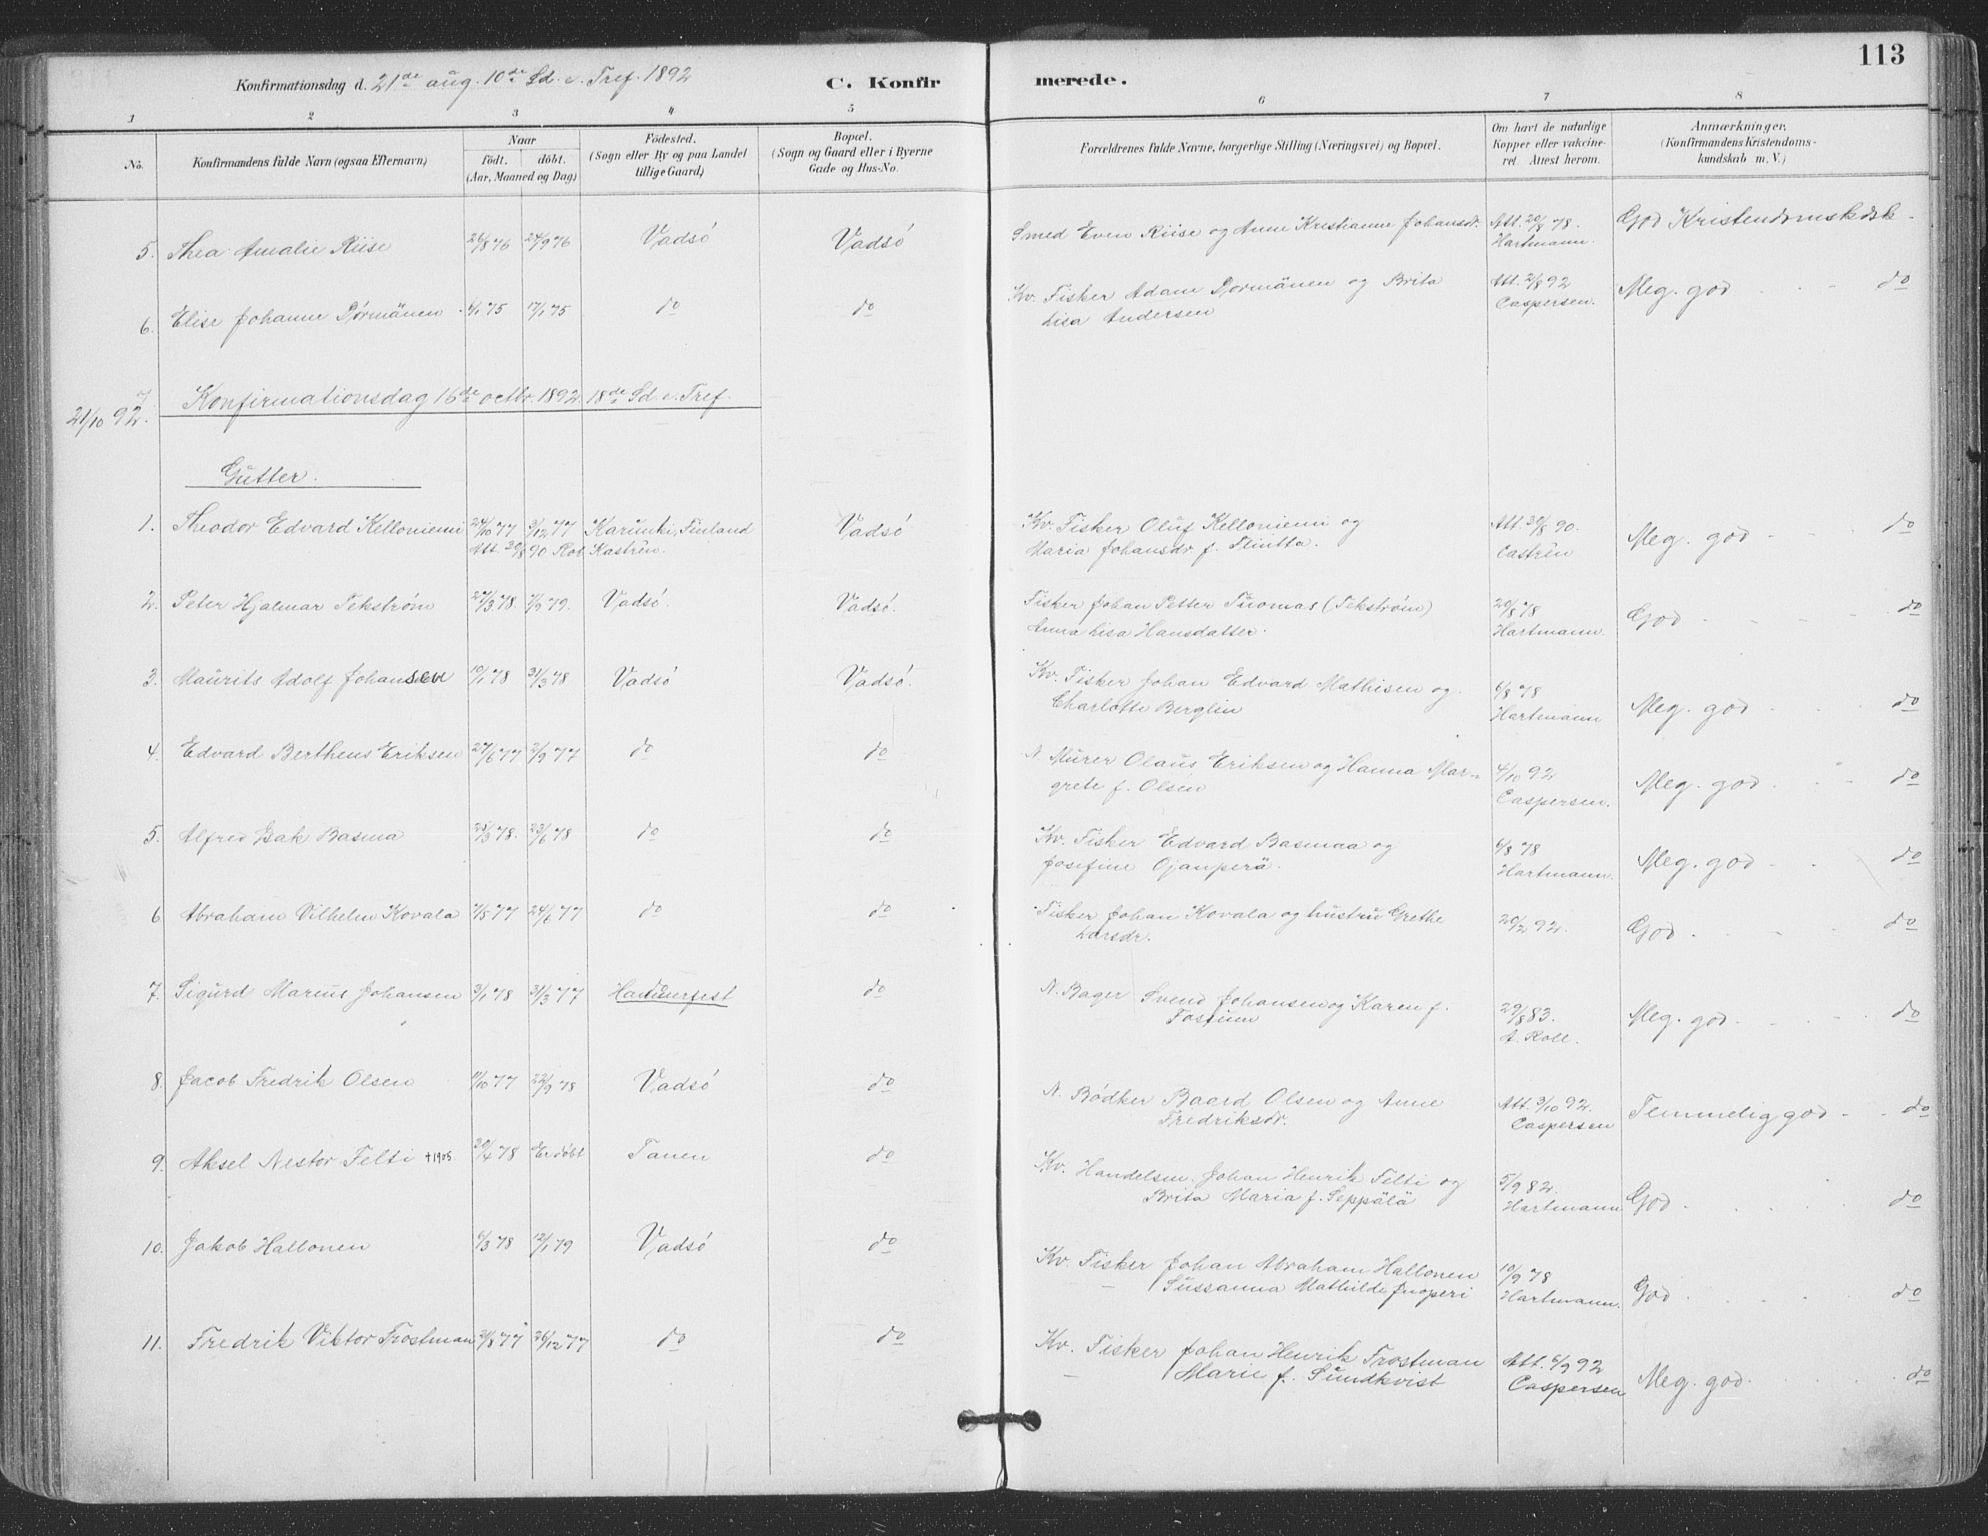 113
Konfirmationsdag d. 21de aug. 10de Sd. e. Tref. 1892
C. Konfirmerede.
1 2 3 4 5 6 7 8
No.
Konfirmandens fulde Navn (ogsaa Efternavn)
Naar
födt. döbt.
(Aar, Maaned og Dag)
Födested.
(Sogn eller By og paa Landet
tillige Gaard)
Bopæl.
(Sogn og Gaard eller i Byerne
Gade og Hus-No.
Forældrenes fulde Navne, borgerlige Stilling (Næringsvei) og Bopæl.
Om havt de naturlige
Kopper eller vakcine-
ret. Attest herom.
Anmærkninger.
(Konfirmandens Kristendoms-
kundskab m. V.)
5. Thea Amalie Riise 26/8 76 24/9 76 Vadsö Vadsö Smed Even Riise og Anne Kristianne Johansdr. Att. 20/8 78. God Kristendomskdsk.
Hartmann.
6. Elise Johanne Dørmänen 6/1 75 17/1 75 do do Kv. Fisker Adam Dørmänen og Brita Att. 2/8 92 Meg. god do
Lisa Andersen Caspersen.
21/10 92. Konfirmationsdag 16de octbr. 1892. 18de Sd e. Tref.
Gutter.
1. Theodor Edvard Kelloniemi 24/10 77 3/12 77 Karunki, Finland Vadsö Kv. Fisker Oluf Kelloniemi og Att. 30/8 90. Meg. god do
Att. 30/8 90 Rob. Kastrèn. Maria Johansdr f. Flintta. Castrèn
2. Peter Hjalmar Tekström 27/3 78. 7/2 79. Vadsö. Vadsö. Fisker Johan Petter Tuomas (Tekström) 20/8 78 God do
Anna Lisa Hansdatter. Hartmann.
3. Maurits Adolf Johansen 10/1 78 31/3 78 Vadsö Vadsö. Kv. Fisker Johan Edvard Mathisen og 6/8 78 Meg. god do
Charlotte Berglin Hartmann
4. Edvard Berthens Eriksen 27/6 77 2/9 77 do do N. Murer Olaus Eriksen og Hanna Mar- 4/10 92 Meg. god do
grete f. Olsen Caspersen.
5. Alfred Isak Basma 25/3 78. 23/6 78 do do Kv. Fisker Edvard Basmaa og 6/8 78 Meg. god do
Josefine Ojanperä. Hartmann.
6. Abraham Vilhelm Kovala 7/5 77 24/6 77 do do Fisker Johan Kovala og hustru Grethe 20/2 92. God do
Larsdr.
7. Sigurd Marius Johansen 3/1 78 31/3 77 Hammerfest do N. Bager Svend Johansen og Karen f. 29/8 83. Meg. god do
Fossum A. Roll.
8. Jacob Fredrik Olsen 11/10 77 22/9 78 Vadsö do N. Bödker Baard Olsen og Anne Att. 3/10 92. Temmelig god do
Fredriksdr. Caspersen
9. Aksel Nestor Felti +1905 30/4 78 Er döbt Tanen do Kv. Handelsm. Johan Henrik Felti og 5/9 82. God do
Brita Maria f. Seppälä Hartmann
10. Jakob Hallonen 6/3 78 12/1 79 Vadsö do Kv. Fisker Johan Abraham Hallonen 10/9 78 God do
Sussanna Mathilde Juoperi Hartmann.
11. Fredrik Viktor Frostman 3/8 77 26/12 77 do do Kv. Fisker Johan Henrik Frostman Att. 6/9 92 Meg. god. do
Marie f. Sundkvist Caspersen